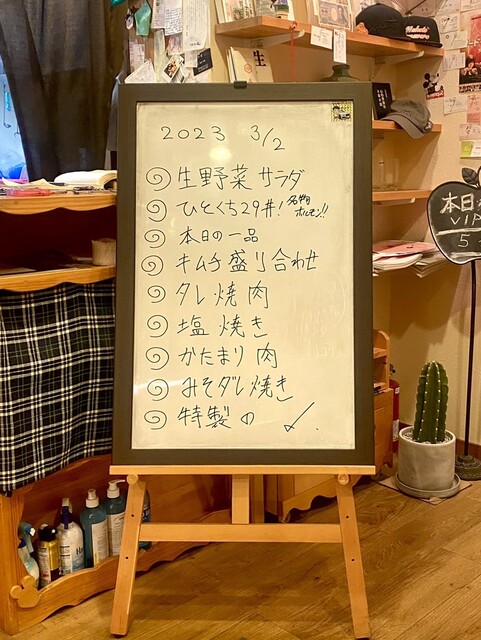 2023 3/2
生野菜 サラダ
ひとくち29丼! 名物ホルモン!!
本日の一品
キムチ盛り合わせ
タレ焼肉
塩焼き
かたまり肉
みそダレ焼き
特製の 〆.
本日
VIP
5
生